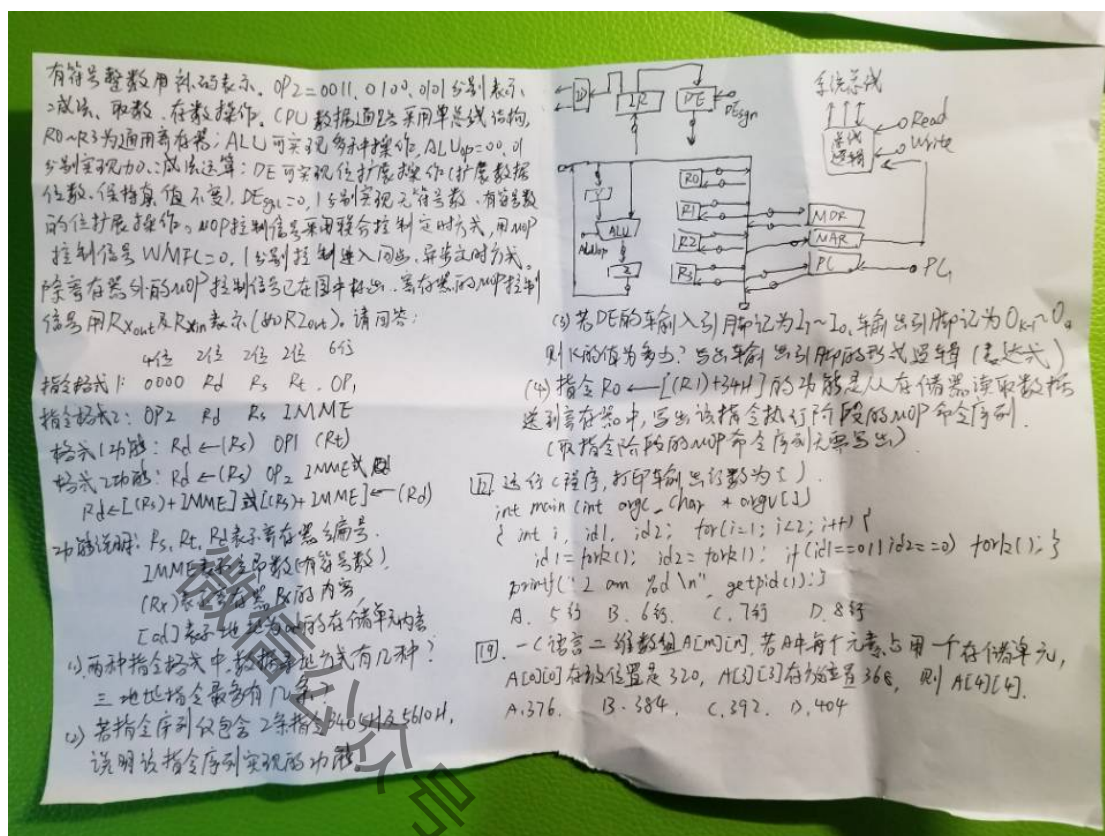 有符号整数用补码表示. OP2=0011, 0100, 0101分别表示
减法、取数、存数操作. CPU数据通路采用单总线结构,
R0~R3为通用寄存器; ALU可实现多种操作, ALUop=00, 01
分别实现加、减法运算; DE可实现位扩展操作(扩展数据
位数、保持真值不变), DEsgn=0, 1分别实现无符号数、有符号数
的位扩展操作。μOP控制信号采用联合控制定时方式, 用μOP
控制信号WMFC=0, 1分别控制进入同步、异步定时方式。
除寄存器外的μOP控制信号已在图中标出、寄存器的μOP控制
信号用RXout及RXin表示(如R2out)。请回答:
4位 2位 2位 2位 6位
指令格式1: 0000 Rd Rs Rt OP1
指令格式2: OP2 Rd Rs IMME
格式1功能: Rd ←(Rs) OP1 (Rt)
格式2功能: Rd ←(Rs) OP2 IMME或
Rd←[(Rs)+IMME]或[(Rs)+IMME]←(Rd)
功能说明: Rs, Rt, Rd表示寄存器编号.
IMME表示立即数(有符号数)
(Rx)表示寄存器Rx的内容,
[ad]表示地址为ad的存储单元内容
(1)两种指令格式中, 数据寻址方式有几种?
三地址指令最多有几条?
(2) 若指令序列仅包含2条指令3405H及5610H,
说明该指令序列实现的功能
ID
IR
DE
DEsgn
系统总线
总线
逻辑
Read
Write
R0
R1
R2
R3
Y
ALU
ALUop
Z
MDR
MAR
PC
PC1
(3) 若DE的输入引脚记为I7~I0, 输出引脚记为OK-1~O0
则K的值为多少? 写出输出引脚的形式逻辑(表达式)
(4) 指令R0 ←[(R1)+34H]的功能是从存储器读取数据
送到寄存器中, 写出该指令执行阶段的μOP命令序列.
(取指令阶段的μOP命令序列无需写出)
12 运行C程序, 打印输出行数为( ).
int main (int argc, char * argv[])
{ int i, id1, id2; for(i=1; i<2; i++) {
id1=fork(); id2=fork(); if(id1==0||id2==0) fork(); }
printf("I am %d \n", getpid()); }
A. 5行 B. 6行 C. 7行 D. 8行
19. 一C语言二维数组A[m][n], 若A中每个元素占用一个存储单元,
A[0][0]存放位置是320, A[3][3]存放位置368, 则A[4][4].
A.376. B.384. C.392. D.404
微信公众号